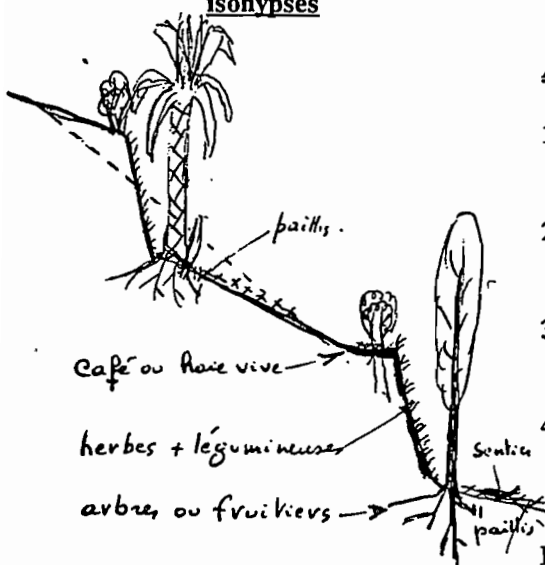 isohypses
paillis.
café ou haie vive
herbes + légumineuses
arbres ou fruitiers
sentier
paillis